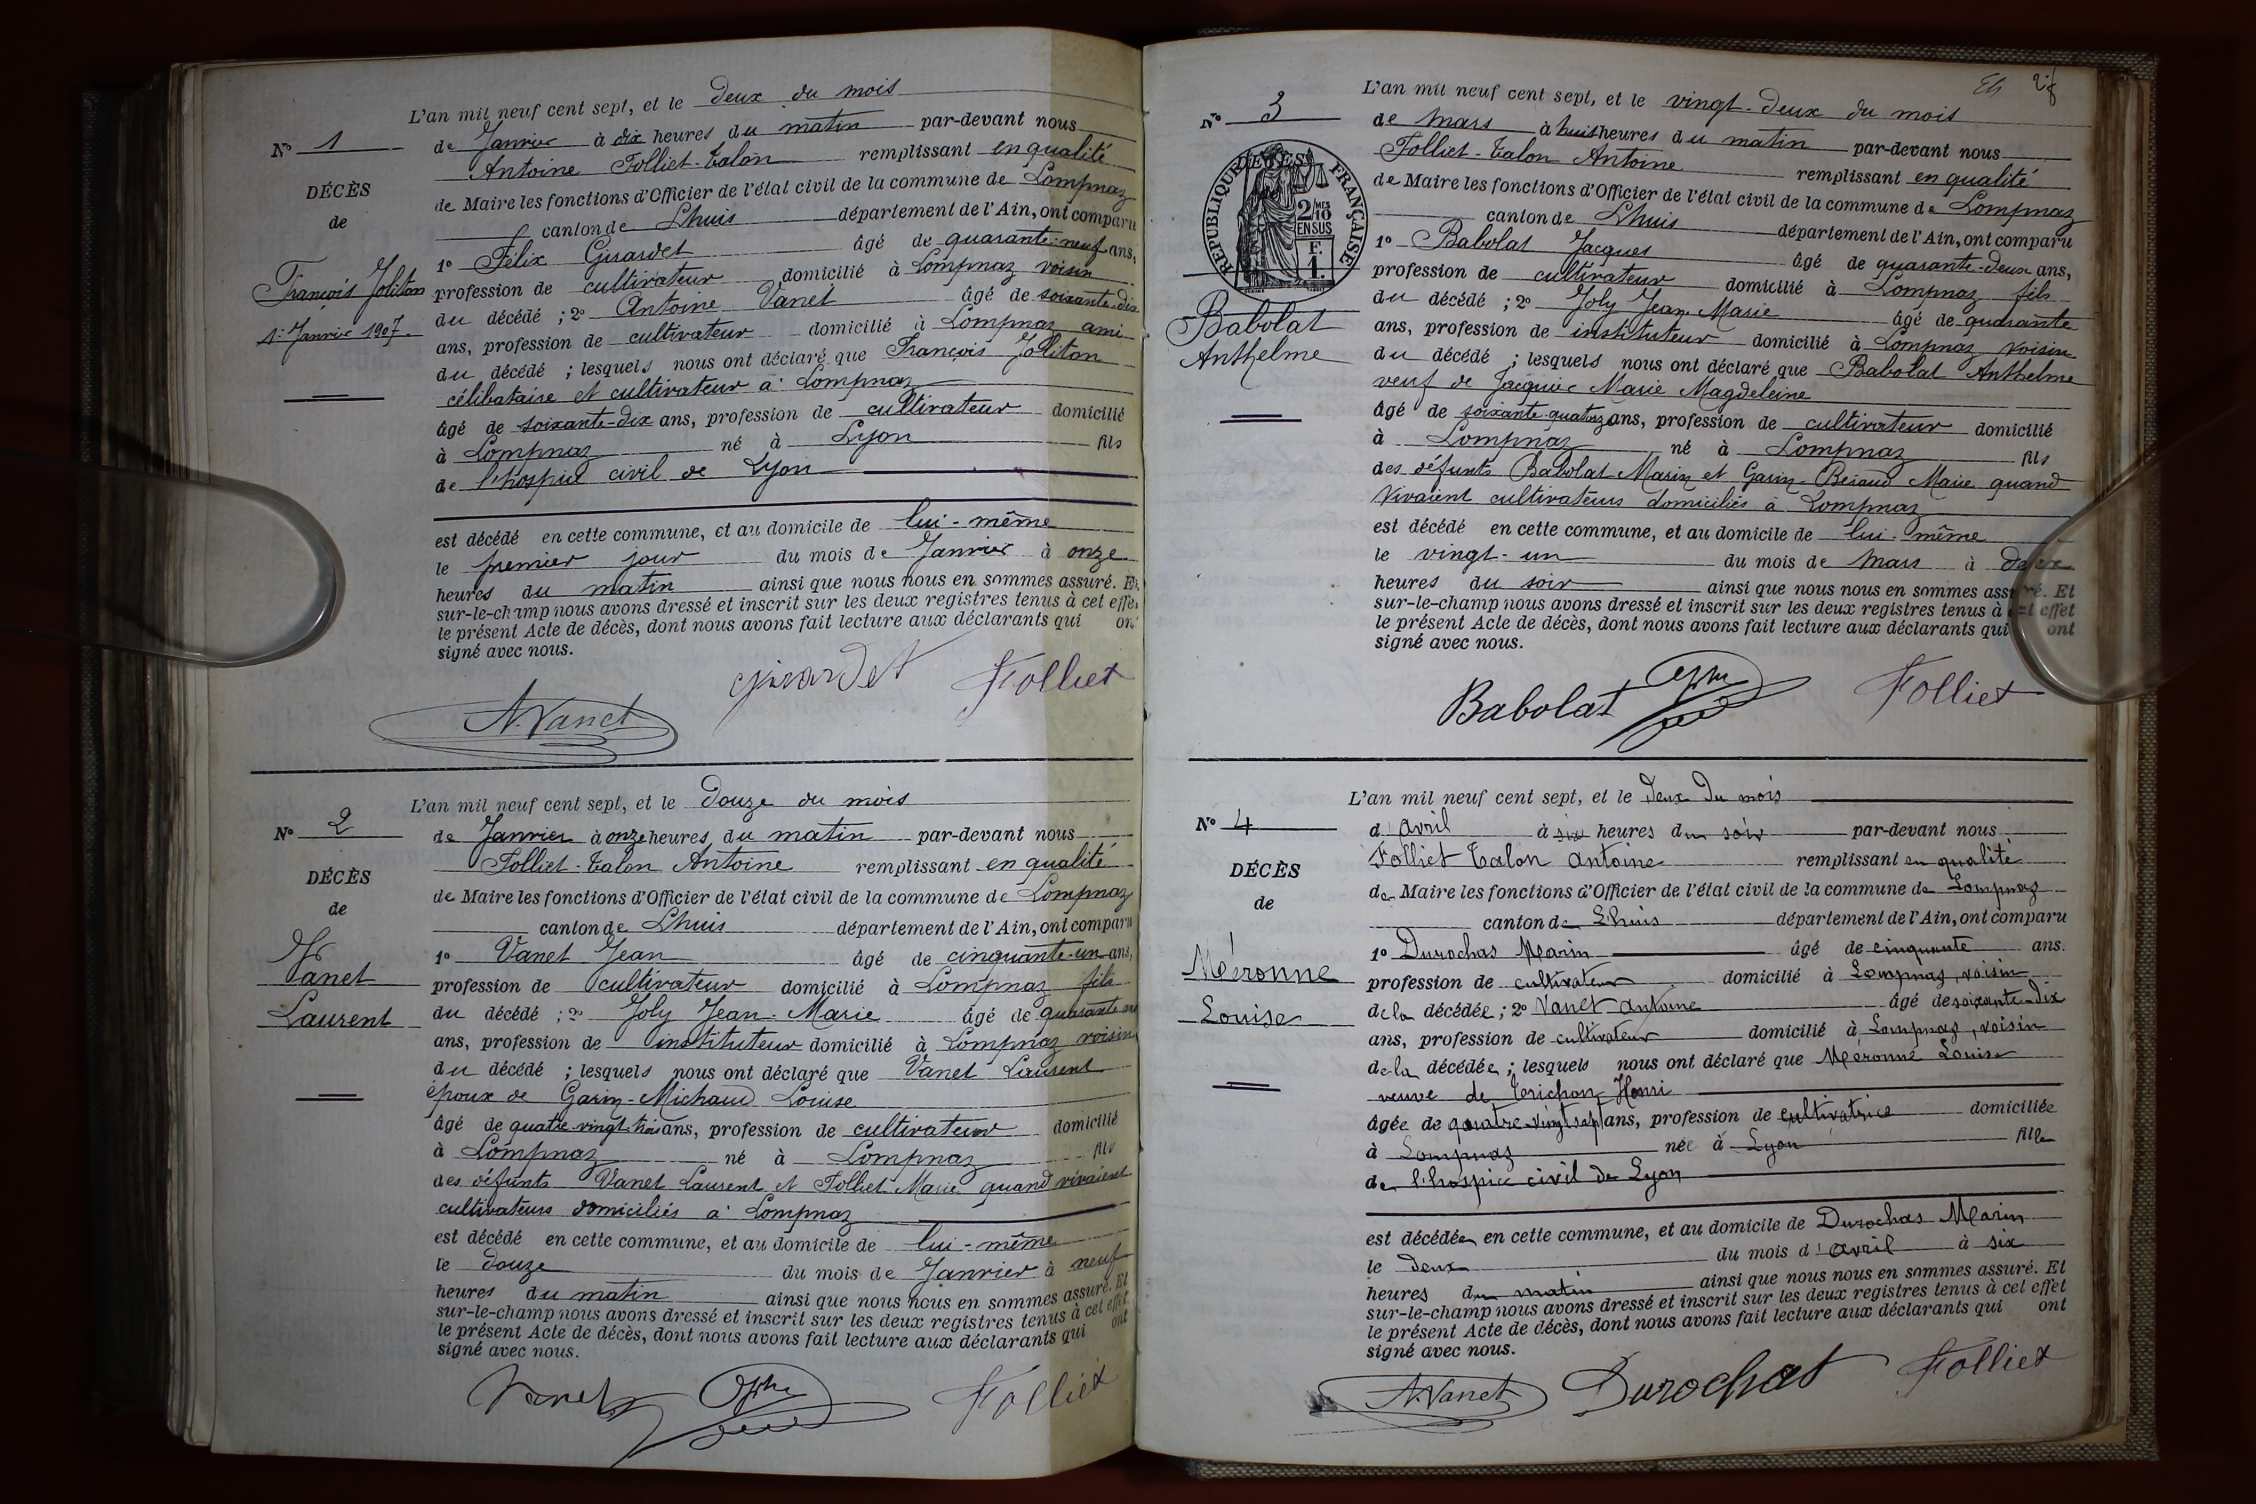 L'an mil neuf cent sept, et le deux du mois
N° 1
de Janvier à dix heures du matin par-devant nous
Antoine Folliet-Talon remplissant en qualité
DÉCÈS
de Maire les fonctions d'Officier de l'état civil de la commune de Lompnaz
de
canton de Lhuis département de l'Ain, ont comparu
1° Félix Girardet âgé de quarante-neuf ans,
François Joliton
profession de cultivateur domicilié à Lompnaz voisin
du décédé ; 2° Antoine Vanet âgé de soixante-dix
1er Janvier 1907
ans, profession de cultivateur domicilié à Lompnaz ami
du décédé ; lesquels nous ont déclaré que François Joliton
célibataire et cultivateur à Lompnaz
âgé de soixante-dix ans, profession de cultivateur domicilié
à Lompnaz né à Lyon fils
de l'hospice civil de Lyon
est décédé en cette commune, et au domicile de lui-même
le premier jour du mois de Janvier à onze
heures du matin ainsi que nous nous en sommes assuré. Et
sur-le-champ nous avons dressé et inscrit sur les deux registres tenus à cet effet
le présent Acte de décès, dont nous avons fait lecture aux déclarants qui ont
signé avec nous.
Girardet Folliet
A. Vanet
L'an mil neuf cent sept, et le douze du mois
N° 2
de Janvier à onze heures du matin par-devant nous
Folliet-Talon Antoine remplissant en qualité
DÉCÈS
de Maire les fonctions d'Officier de l'état civil de la commune de Lompnaz
de
canton de Lhuis département de l'Ain, ont comparu
1° Vanet Jean âgé de cinquante-un ans,
Vanet
profession de cultivateur domicilié à Lompnaz fils
Laurent
du décédé ; 2° Joly Jean-Marie âgé de quarante
ans, profession de instituteur domicilié à Lompnaz voisin
du décédé ; lesquels nous ont déclaré que Vanet Laurent
époux de Garin-Michaud Louise
âgé de quatre-vingt-trois ans, profession de cultivateur domicilié
à Lompnaz né à Lompnaz fils
des défunts Vanet Laurent et Folliet Marie quand vivaient
cultivateurs domiciliés à Lompnaz
est décédé en cette commune, et au domicile de lui-même
le douze du mois de Janvier à neuf
heures du matin ainsi que nous nous en sommes assuré. Et
sur-le-champ nous avons dressé et inscrit sur les deux registres tenus à cet effet
le présent Acte de décès, dont nous avons fait lecture aux déclarants qui ont
signé avec nous.
Vanet Folliet
L'an mil neuf cent sept, et le vingt-deux du mois
N° 3
de mars à huit heures du matin par-devant nous
Folliet-Talon Antoine remplissant en qualité
RÉPUBLIQUE FRANÇAISE
2/10 MES
EN SUS
F.
1.
de Maire les fonctions d'Officier de l'état civil de la commune de Lompnaz
canton de Lhuis département de l'Ain, ont comparu
1° Babolat Jacques âgé de quarante-deux ans,
profession de cultivateur domicilié à Lompnaz fils
Babolat
du décédé ; 2° Joly Jean-Marie âgé de quarante
Anthelme
ans, profession de instituteur domicilié à Lompnaz voisin
du décédé ; lesquels nous ont déclaré que Babolat Anthelme
veuf de Jacquier Marie Magdeleine
âgé de soixante-quatorze ans, profession de cultivateur domicilié
à Lompnaz né à Lompnaz fils
des défunts Babolat Marin et Garin-Béraud Marie quand
vivaient cultivateurs domiciliés à Lompnaz
est décédé en cette commune, et au domicile de lui-même
le vingt-un du mois de mars à deux
heures du soir ainsi que nous nous en sommes assuré. Et
sur-le-champ nous avons dressé et inscrit sur les deux registres tenus à cet effet
le présent Acte de décès, dont nous avons fait lecture aux déclarants qui ont
signé avec nous.
Babolat Folliet
L'an mil neuf cent sept, et le deux du mois
N° 4
d'avril à six heures du soir par-devant nous
Folliet Talon Antoine remplissant en qualité
DÉCÈS
de Maire les fonctions d'Officier de l'état civil de la commune de Lompnaz
de
canton de Lhuis département de l'Ain, ont comparu
1° Durochas Marin âgé de cinquante ans.
Méronne
profession de cultivateur domicilié à Lompnaz, voisin
Louise
de la décédée ; 2° Vanet Antoine âgé de soixante-dix
ans, profession de cultivateur domicilié à Lompnaz, voisin
de la décédée ; lesquels nous ont déclaré que Méronne Louise
veuve de Terichon Henri
âgée de quatre-vingt-sept ans, profession de cultivatrice domiciliée
à Lompnaz née à Lyon fille
de l'hospice civil de Lyon
est décédée en cette commune, et au domicile de Durochas Marin
le deux du mois d'avril à six
heures du matin ainsi que nous nous en sommes assuré. Et
sur-le-champ nous avons dressé et inscrit sur les deux registres tenus à cet effet
le présent Acte de décès, dont nous avons fait lecture aux déclarants qui ont
signé avec nous.
A. Vanet Durochat Folliet